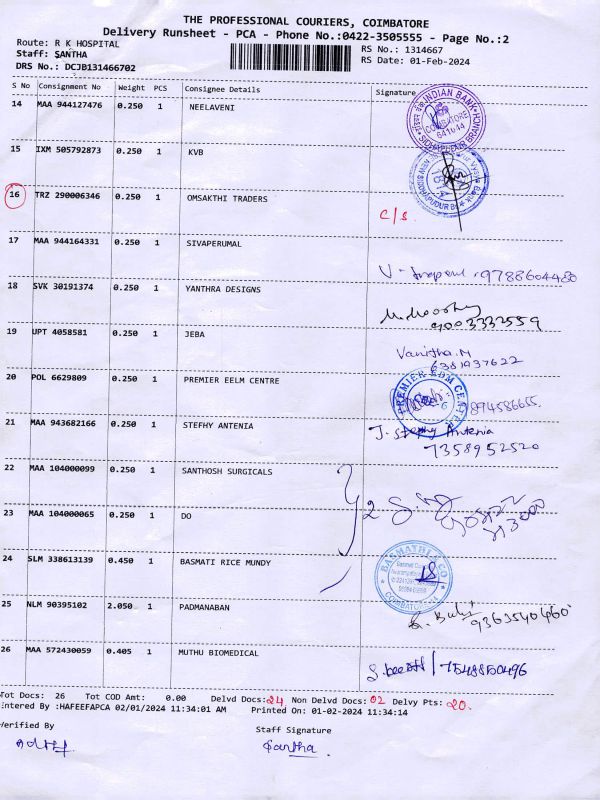 THE PROFESSIONAL COURIERS, COIMBATORE
Delivery Runsheet - PCA - Phone No.:0422-3505555 - Page No.:2
Route: R K HOSPITAL
Staff: SANTHA
RS No.: 1314667
DRS No.: DCJB131466702
RS Date: 01-Feb-2024
S No Consignment No Weight PCS Consignee Details Signature
14 MAA 944127476 0.250 1 NEELAVENI
INDIAN BANK
COIMBATORE
641044
15 IXM 505792873 0.250 1 KVB
16 TRZ 290006346 0.250 1 OMSAKTHI TRADERS
C/S.
17 MAA 944164331 0.250 1 SIVAPERUMAL
9788604480
18 SVK 30191374 0.250 1 YANTHRA DESIGNS
9003332559
19 UPT 4058581 0.250 1 JEBA
Vanitha.M
6381937622
20 POL 6629809 0.250 1 PREMIER EELM CENTRE
PREMIER EDM CENTRE
894586655.
21 MAA 943682166 0.250 1 STEFHY ANTENIA
J. stephy Antenia
7358952520
22 MAA 104000099 0.250 1 SANTHOSH SURGICALS
23 MAA 104000065 0.250 1 DO
24 SLM 338613139 0.450 1 BASMATI RICE MUNDY
BASMATHI & CO
COIMBATORE
25 NLM 90395102 2.050 1 PADMANABAN
9363540460
26 MAA 572430059 0.405 1 MUTHU BIOMEDICAL
7548850496
Tot Docs: 26 Tot COD Amt: 0.00 Delvd Docs:24 Non Delvd Docs:02 Delvy Pts:20.
Entered By :HAFEEFAPCA 02/01/2024 11:34:01 AM Printed On: 01-02-2024 11:34:14
Verified By
Staff Signature
Santha